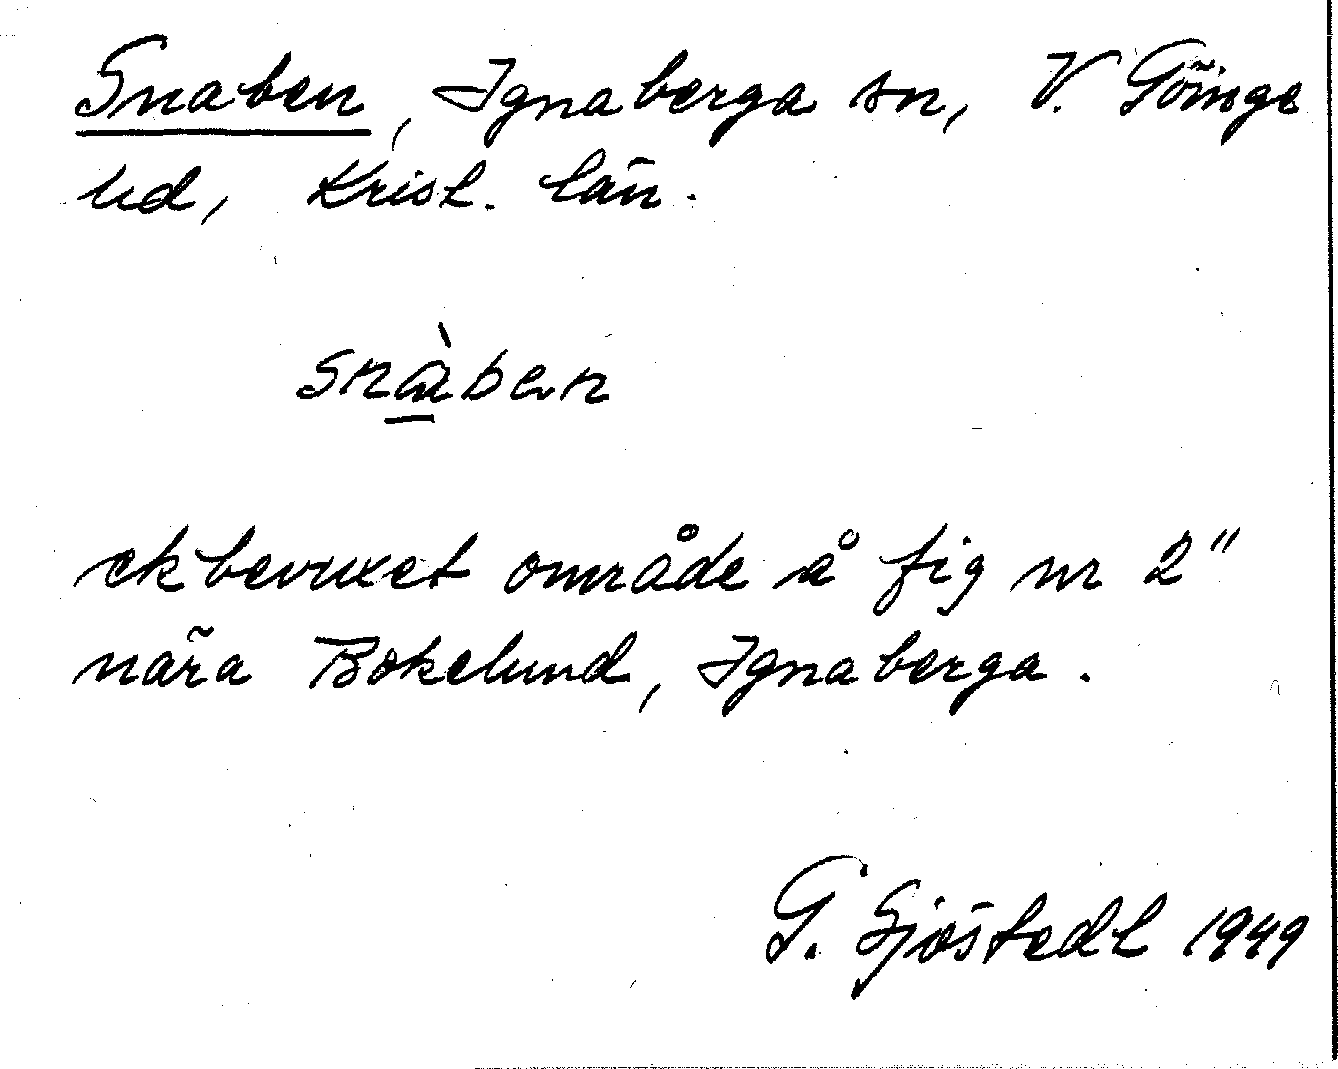 Snaben, Ignaberga sn, V. Göinge
hd, Krist. län.
snàben
ekbevuxet område å fig nr 2"
nära Bokelund, Ignaberga.
G. Sjöstedt 1949